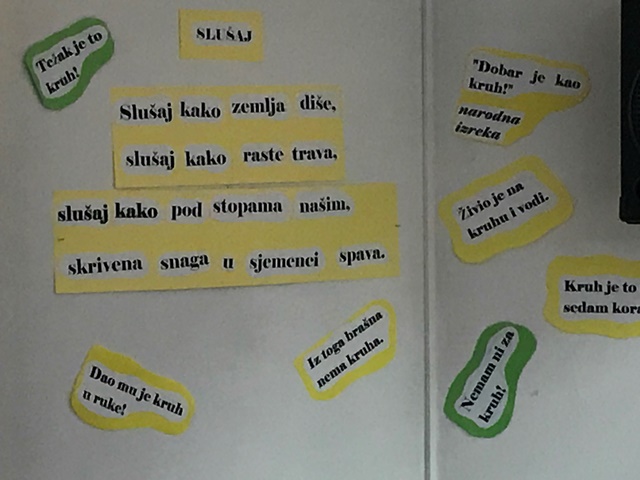 Težak je to
kruh!
SLUŠAJ
Slušaj kako zemlja diše,
slušaj kako raste trava,
slušaj kako pod stopama našim,
skrivena snaga u sjemenci spava.
Dao mu je kruh
u ruke!
Iz toga brašna
nema kruha.
"Dobar je kao
kruh!"
narodna
izreka
Živio je na
kruhu i vodi.
Kruh je to
sedam kora
Nemam ni za
kruh!